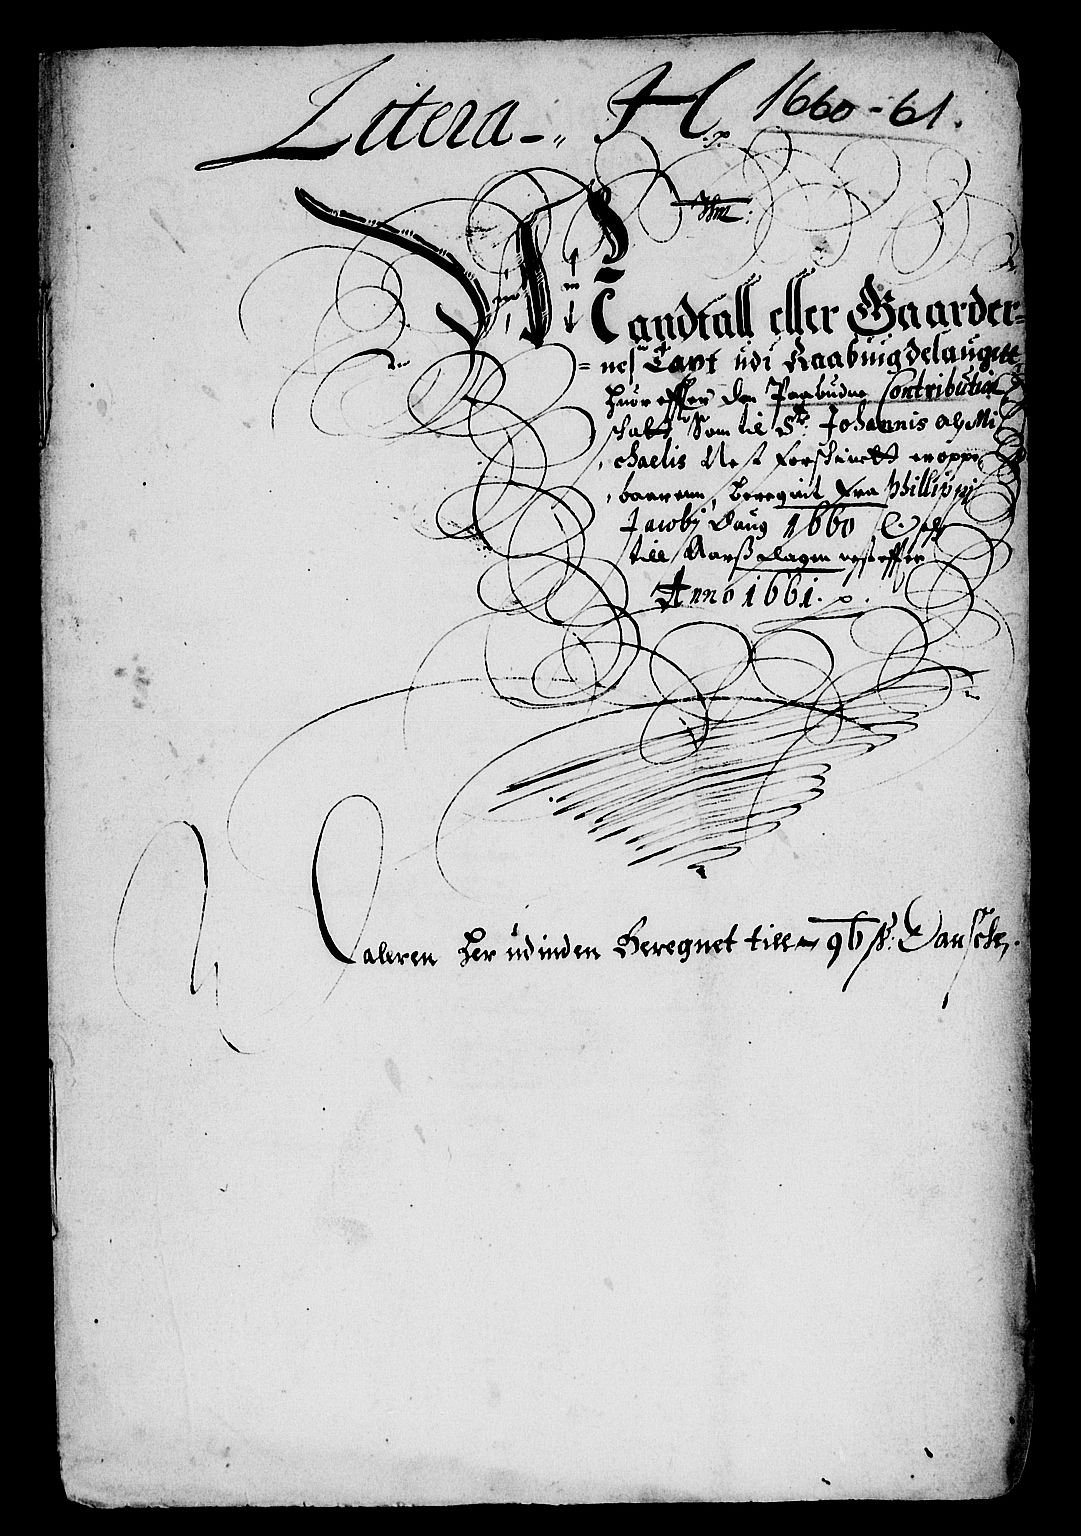 Litera - H 1660-61.
Mandtall eller Gaarder=
=nes Taxt udi Raabuigdelaugett
Huor effter den Paabudne Contribution
skatt, Som til St: Johannis och Mi
chaelis Nest forschinckt er oppe
baarenn, beregnit fra Phillippi
Jacobj Daug 1660 Och
till Aarß dagen nest effter
Anno 1661.
Daleren her udinden Beregnet till 96 ß: Dansche.